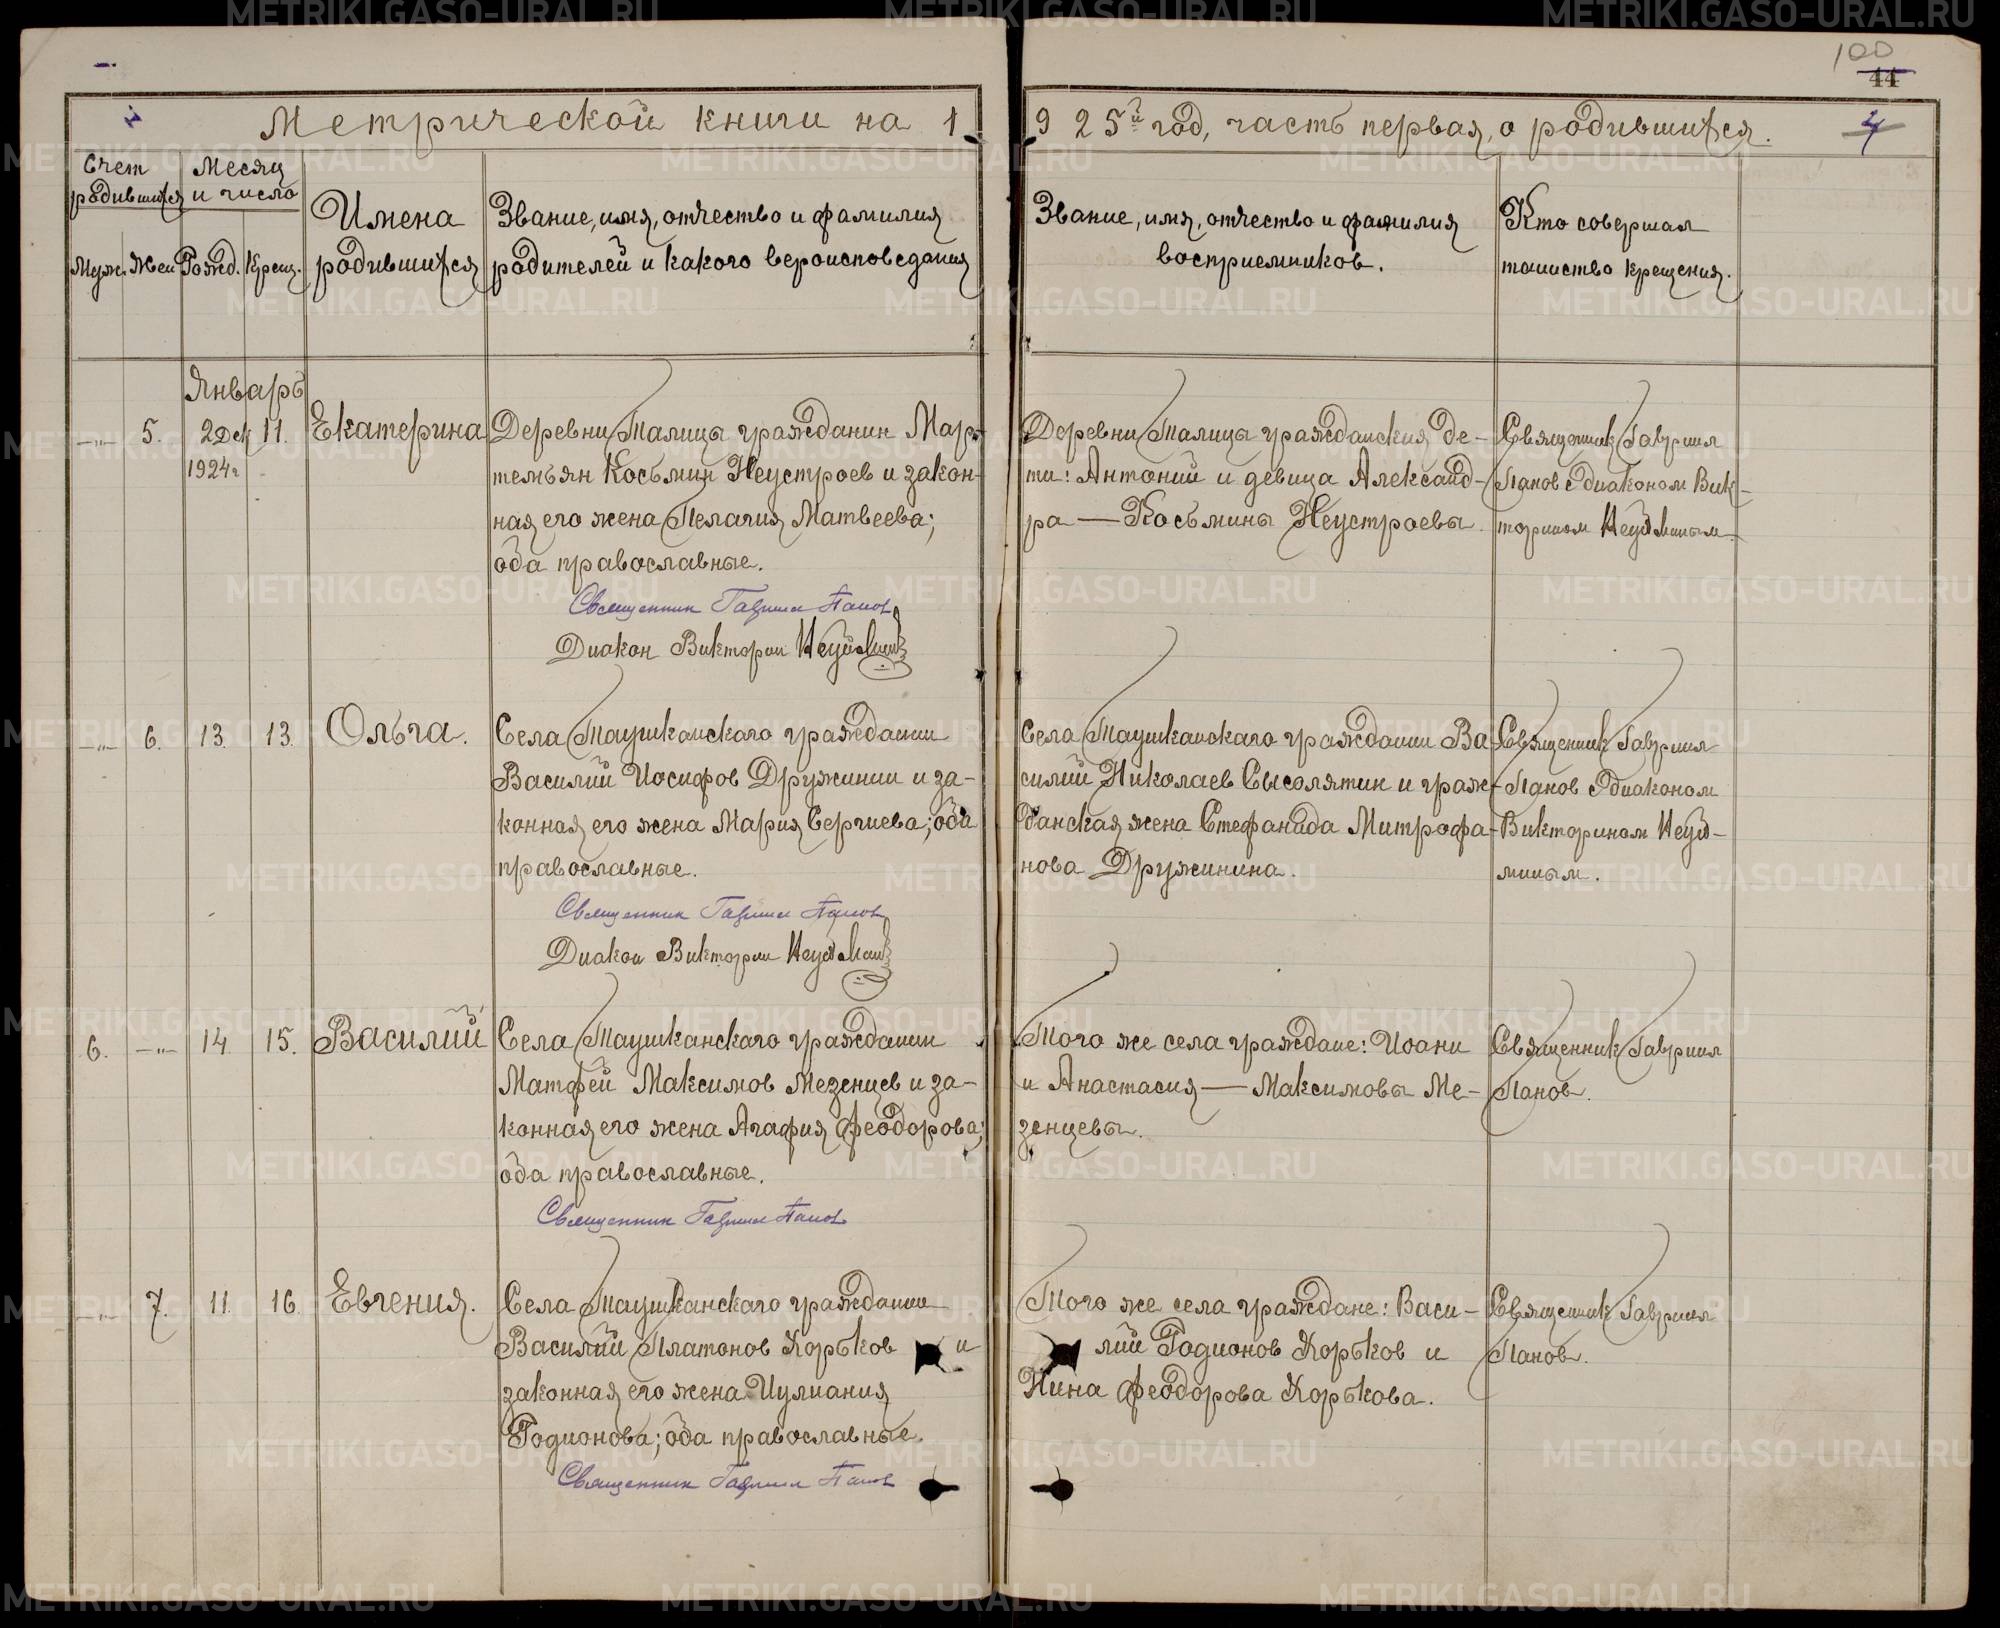 100
44
4
Метрической книги на 1925й год, часть первая, о родившихся.
Счет родившихся
Месяц и число
Муж. Жен. Рожд. Крещ.
Имена родившихся
Звание, имя, отчество и фамилия
родителей и какого вероисповедания
Звание, имя, отчество и фамилия
восприемников.
Кто совершал
таинство крещения.
Январь
—„— 5. 2 Дек 11. Екатерина
1924г
Деревни Талицы гражданин Мар-
темьян Косьмин Неустроев и закон-
ная его жена Пелагия Матвеева;
оба православные.
Священник Гавриил Панов
Диакон Викторин Неуймин
Деревни Талицы гражданския де-
ти: Антоний и девица Александ-
ра — Косьмины Неустроевы.
Священник Гавриил
Панов с диаконом Вик-
торином Неуйминым.
—„— 6. 13. 13. Ольга.
Села Таушканскаго гражданин
Василий Иосифов Дружинин и за-
конная его жена Мария Сергиева; оба
православные.
Священник Гавриил Панов
Диакон Викторин Неуймин
Села Таушканскаго гражданин Ва-
силий Николаев Сысолятин и граж-
данская жена Стефанида Митрофа-
нова Дружинина.
Священник Гавриил
Панов с диаконом
Викторином Неуй-
миным.
6. —„— 14. 15. Василий
Села Таушканскаго гражданин
Матфей Максимов Мезенцев и за-
конная его жена Агафия Феодорова;
оба православные.
Священник Гавриил Панов
Того же села граждане: Иоанн
и Анастасия — Максимовы Ме-
зенцевы.
Священник Гавриил
Панов.
—„— 7. 11. 16. Евгения.
Села Таушканскаго гражданин
Василий Платонов Хорьков и
законная его жена Иулиания
Родионова; оба православные.
Священник Гавриил Панов
Того же села граждане: Васи-
лий Родионов Хорьков и
Нина Феодорова Хорькова.
Священник Гавриил
Панов.
METRIKI.GASO-URAL.RU